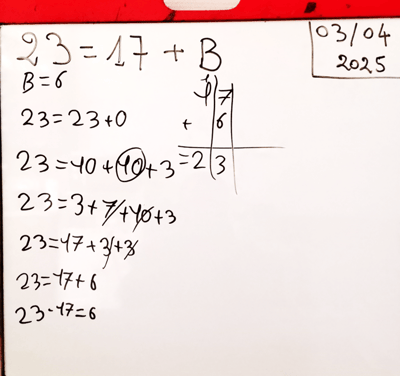 23=17+B
03/04
2025
B=6
17
+ 6
=23
23=23+0
23=10+10+3
23=3+7+10+3
23=17+3+3
23=17+6
23-17=6